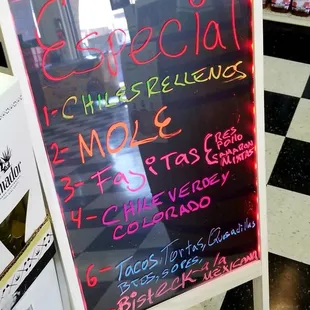 Especial
1- CHILES RELLENOS
2- MOLE
3- Fajitas RES
Pollo
CAMARON
MIXTAS
4- CHILE VERDE Y
COLORADO
6- Tacos, Tortas, Quesadillas
BTOS, SOPES,
Bisteck a la
MEXICANA